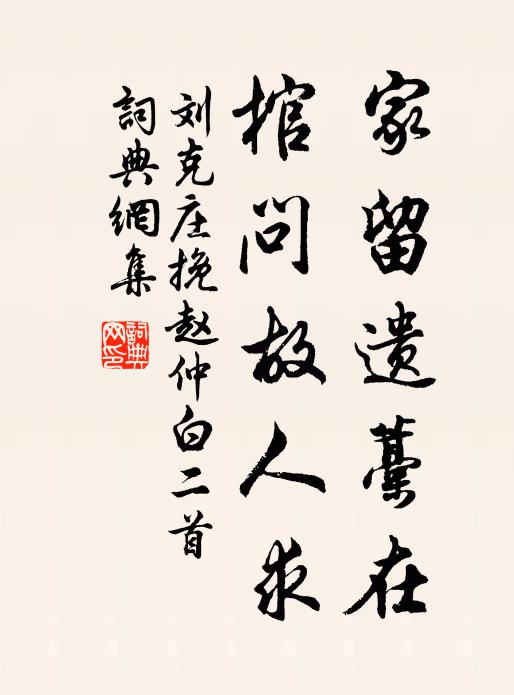 家留遗藁在
棺问故人求
刘克庄挽赵仲白二首
詞典網集
詞典网印